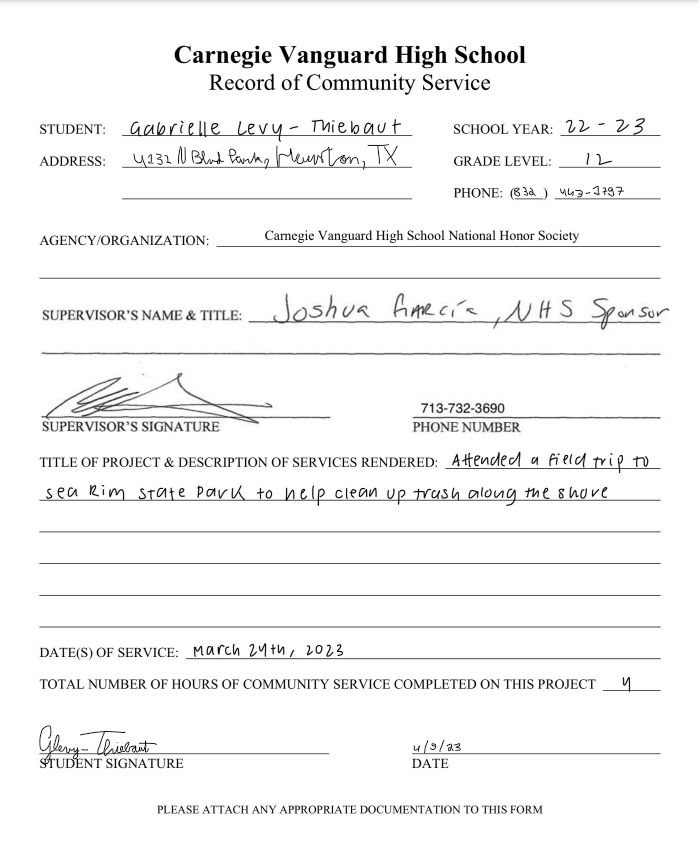 Carnegie Vanguard High School
Record of Community Service
STUDENT: Gabrielle Levy-Thiebaut SCHOOL YEAR: 22-23
ADDRESS: 4232 N Blvd Park, Houston, TX GRADE LEVEL: 12
PHONE: (832) 443-3797
AGENCY/ORGANIZATION: Carnegie Vanguard High School National Honor Society
SUPERVISOR'S NAME & TITLE: Joshua García, NHS Sponsor
713-732-3690
SUPERVISOR'S SIGNATURE PHONE NUMBER
TITLE OF PROJECT & DESCRIPTION OF SERVICES RENDERED: Attended a field trip to
sea Rim state Park to help clean up trash along the shore
DATE(S) OF SERVICE: March 24th, 2023
TOTAL NUMBER OF HOURS OF COMMUNITY SERVICE COMPLETED ON THIS PROJECT 4
Glevy-Thiebaut 4/3/23
STUDENT SIGNATURE DATE
PLEASE ATTACH ANY APPROPRIATE DOCUMENTATION TO THIS FORM